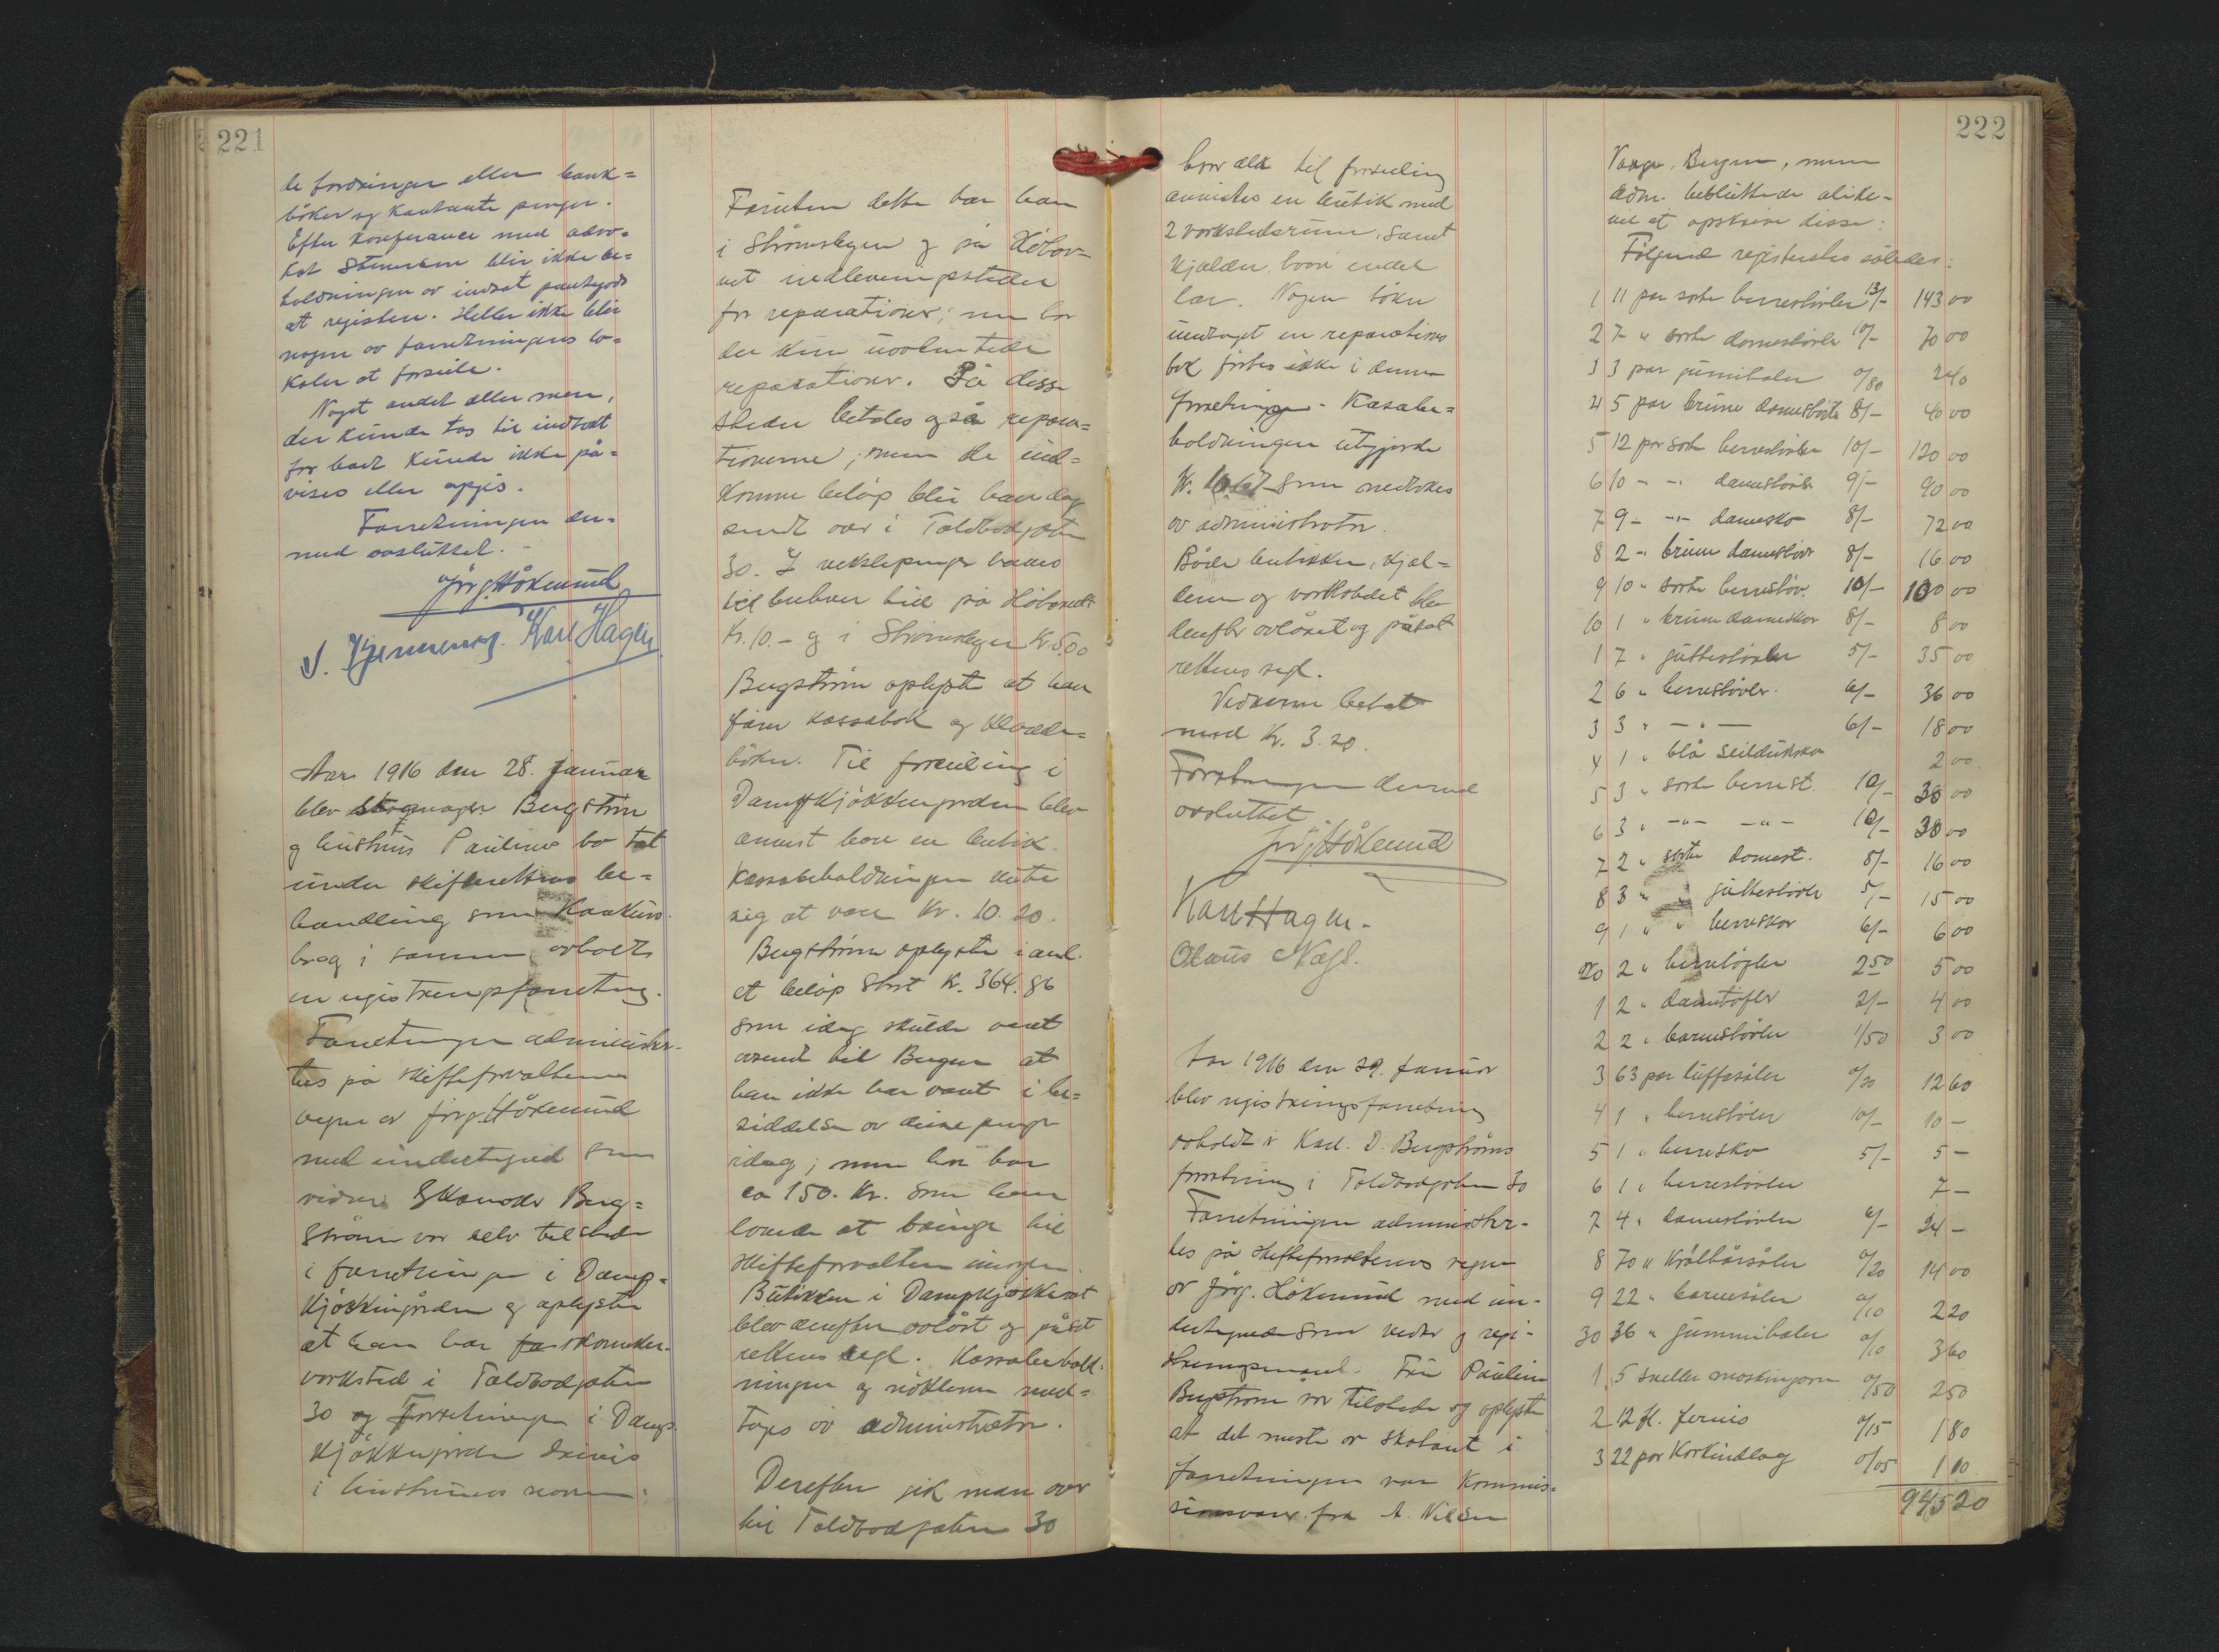 221
le fordringer eller bank=
böker og kontante penger.
Efter konferance med advo=
kat Stenersen blir ikke be=
holdningen av indsat pantegods
at registere. Heller ikke blir
nogen av forretningens lo=
kaler at forseile.
Noget andet eller mere,
der kunde tas til indtægt
for boet kunde ikke på=
vises eller opgis.
Forretningen der=
med avsluttet. -
Jörg Håkenrud
Karl Hagen
Aar 1916 den 28. Januar
blev skomager Bergström
og hustru Paulines bo tat
under skifterettens be=
handling som konkurs
bog i samme avholdt
en registreringsforretning.
Forretningen administer-
tes på skifteforvalterens
vegne av Jörg. Håkenrud
med undertegned som
vidner. Skomaker Berg=
ström var selv tilstede
i forretningen i Damp=
kjökkengården og oplyste
at han har skomaker-
verksted i Toldbodgaten
30 og forretningen i Damp
kjökkengården drives
i hustruens navn:
Foruten dette har han
i Strömshegen og på Höbor=
net indleveringssteder
for reparationer; nu lor
der kun uavhentede
reparationer. På disse
steder betales også repara=
tionerne; men de ind=
komne belöp blir hver dag
sendt over i Toldbodgaten
30. I vekslepenger haves
til enhver tid på Höbornett
Kr. 10.- og i Strömshegen Kr 5.00
Bergström oplyste at han
förer kassabok og kladde=
böker. Til forseiling i
Dampkjökkengården blev
anvist bare en butik.
Kassabeholdningen viste
sig at være Kr. 10.20.
Bergström oplyste i anl.
et belöp stort Kr. 364.86
som idag skulde været
avsendt til Bergen at
han ikke har været i be=
siddelse av disse penger
idag; men han har
ca 150. Kr. som han
lovede at bringe til
skifteforvalteren imorgen.
Butikken i Dampkjökkenet
blev derefter avlåst og påsat
rettens segl. Kassabehold=
ningen og nöklerne med=
toges av administrator.
Derefter gik man over
til Toldbodgaten 30
222
hvor der til forseiling
anvistes en butik med
2 verkstedsrum, samt
kjælder, hvori endel
lær. Nogen böker
undtagt en reparations
bok förtes ikke i denne
forretning. - Kassabe=
holdningen utgjorde
Kr. 16.67 som medtokes
av administrator.
Både butikken, kjæl=
deren og verkstedet blev
derefter avlåset og påsat
rettens segl.
Vidnerne betalt
med Kr. 3.20.
Forretningen dermed
avsluttet
Jörg Håkenrud
Karl Hagen.
Olaus Nagl.
Aar 1916 den 29. Januar
blev registreringsforretning
avholdt i Karl. D. Bergströms
forretning i Toldbodgaten 30
Forretningen administer-
tes på skifteforvalterens vegne
av Jörg. Håkenrud med un-
dertegnede som vidner og regi-
streringsmænd. Fru Pauline
Bergström var tilstede og oplyste
at det meste av skotöiet i
forretningen var kommis=
sionsvarer fra A. Nilsen
Vaage, Bergen, men
adm. besluttede alike-
vel at opskrive disse:
Fölgende registertes således:
1 11 par sorte herrestövler 13/- 143 00
2 7 " sorte damestövler 10/- 70 00
3 3 par gumihæler 0/80 240
4 5 par brune damestövler 8/- 40 00
5 12 par sorte herrestövler 10/- 120 00
6 10 - -"- damestövler 9/- 90 00
7 9 - -"- damesko 8/- 72 00
8 2 -" brune damestövl 8/- 16 00
9 10 " sorte herrestöv. 10/- 100 00
10 1 " brune dameskor 8/- 8 00
1 7 " guttestövler 5/- 35 00
2 6 " herrestövler. 6/- 36 00
3 3 " - " - 6/- 18 00
4 1 " blå seildukskor 2 00
5 3 " sorte herrest. 10/- 30 00
6 3 " -"- -"- 10/- 30 00
7 2 " sorte damest. 8/- 16 00
8 3 " " guttestövler 5/- 15 00
9 1 " " herreskor 6/- 6 00
20 2 " herretöfler 2 50 5 00
1 2 " dametöfler 2/- 4 00
2 2 " barnestövler 1/50 3 00
3 63 par luffasåler 0/20 12 60
4 1 " herrestövler 10/- 10 -
5 1 " herresko 5/- 5 -
6 1 " herrestövler 7 -
7 4 " damestövler 6/- 24 -
8 70 " krölhårsåler 0/20 14 00
9 22 " barnesåler 0/10 2 20
30 36 " gummihæler 0/10 3 60
1 5 sneller maskingarn 0/50 2 50
2 12 fl. fernis 0/15 1 80
3 22 par korkindlæg 0/05 1 10
945 20